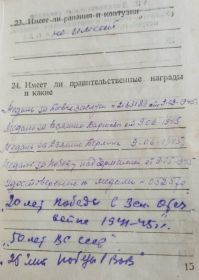 23. Имеет ли ранения и контузии
не имеет
24. Имеет ли правительственные награды
и какие
Медаль за боевые заслуги
Медаль за взятие Варшавы 9.06.1945
Медаль за взятие Берлина 9-06-1945
Медаль за победу над Германией 9.05.1945
Удостоверение к медали
20 лет победы в Вел. Отеч.
войне 1941-45 гг.
"50 лет ВС СССР"
15